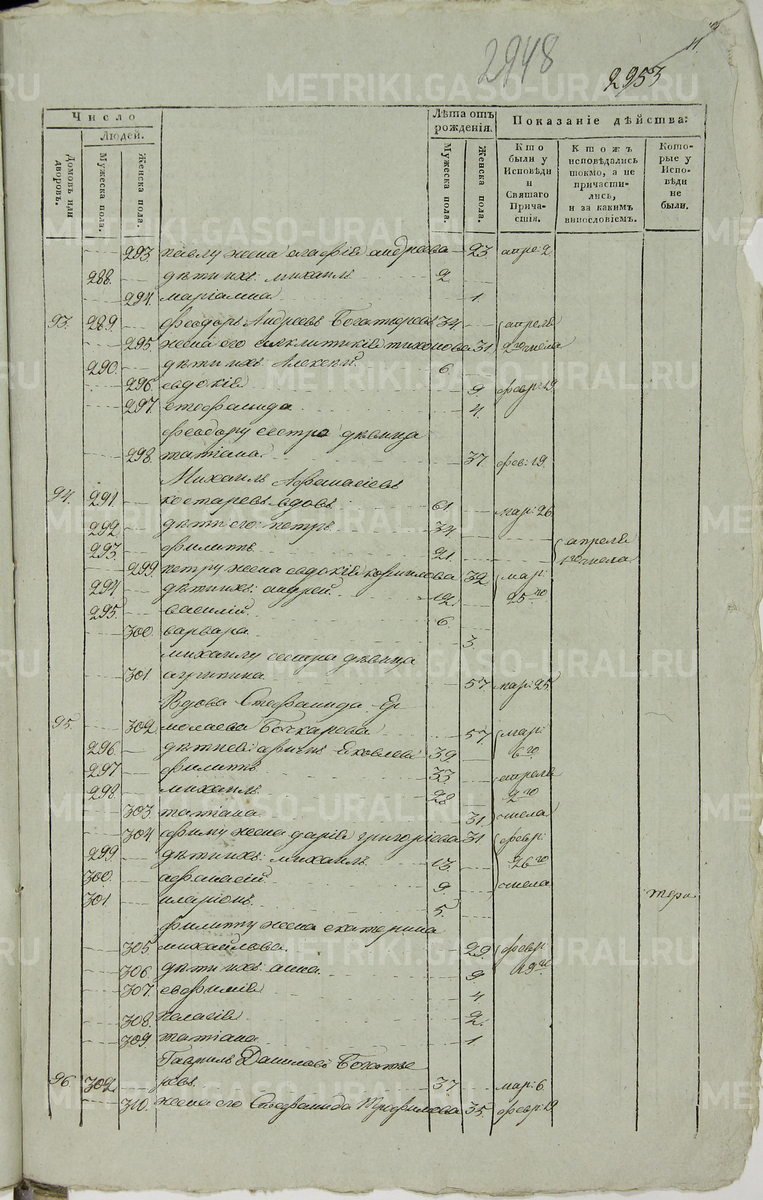 2948
2953
Число
Людей.
Домовъ или дворовъ.
Мужеска пола.
Женска пола.
Лѣта отъ рожденія.
Мужеска пола.
Женска пола.
Показаніе дѣйства:
Кто были у Исповѣди и Святаго Причастія.
Ктожъ исповѣдались токмо, а не причастились, и за какимъ винословіемъ.
Которые у Исповѣди не были.
293. павлу жена агафія андреева 23 апре: 2
288. дѣти ихъ: михаилъ 2
294. маріамна 1
93. 289. феодоръ Андреевъ 34 апрель
295. жена его синклитикія тихонова 31 2го числа
290. дѣти ихъ Алексѣй 6
296. евдокія 9 февр: 19
297. стефанида 4
феодору сестра дѣвица
298. татіана 37 фев: 19.
Михаилъ Афанасіевъ
94. 291. костаревъ вдовъ 61 мар: 26
292. дѣти его: петръ 34
293. филиппъ 21 апреля числа
299. петру жена евдокія 32 мар:
294. дѣти ихъ: андрей 12 25го
295. василій 6
300. варвара 3
михаилу сестра дѣвица
301. 57 мар: 25
Вдова Стефанида Ер
95. 302. молаева Бочкарева 57 мар:
296. дѣти ея: Яковлевъ 39 6го
297. филиппъ 33 апрель
298. михаилъ 28 2го
303. татіана 31 числа
304. ефиму жена дарія григоріева 31 февр:
299. дѣти ихъ: михаилъ 13 26го
300. афанасій 9 числа
301. иларіонъ 5
филиппу жена екатерина
305. михайлова 29 февр
306. дѣти ихъ: анна 9 19го
307. евфимія 4
308. пелагія 2
309. татіана 1
Гавриилъ Даниловъ
96. 302. ревъ 37 мар: 6
310. жена его Стефанида Трофимова 35 февр: 19
METRIKI.GASO-URAL.RU